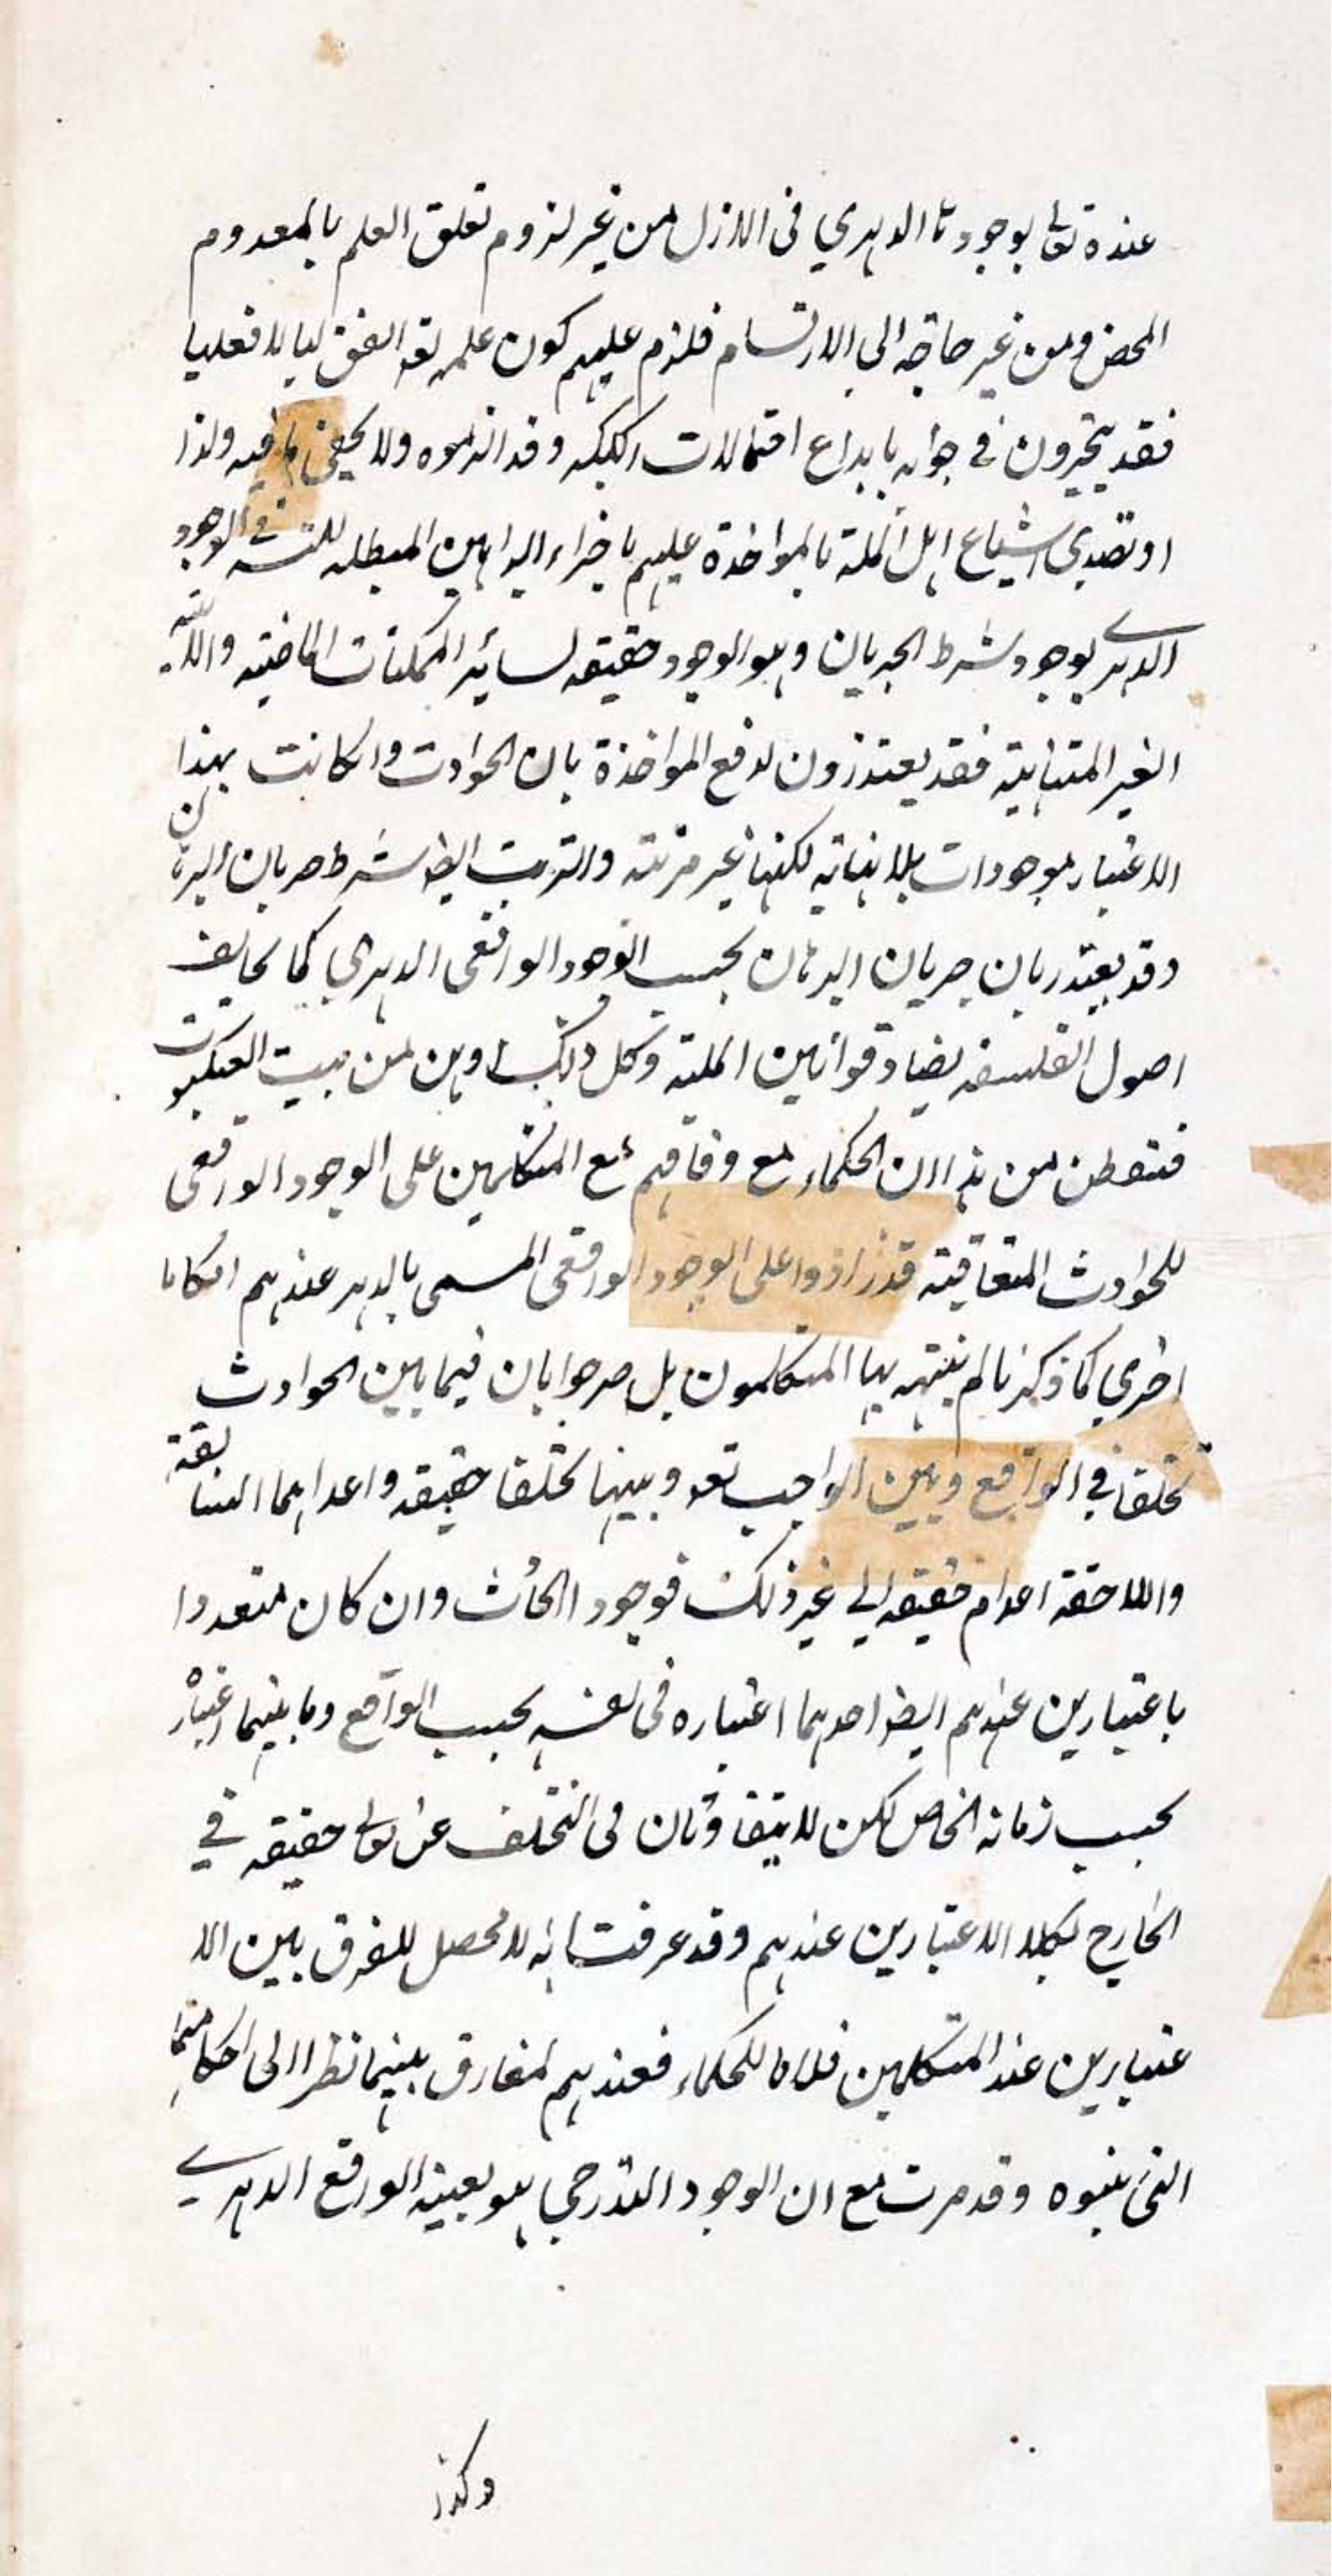 عنده تعالى بوجودها الدهري في الازل من غير لزوم تعلق العلم بالمعدوم
المحض ومن غير حاجة الى الارتسام فلزم عليهم كون علمه تعه انفعاليا لا فعليا
فقد يتحيرون في جوابه بابداع احتمالات ركيكه وقد الزموه ولا يخفى ما فيه ولذا
او تصدى اشياع اهل الملة بالمواخذة عليهم باجراء البراهين المبطله للتسـ في الوجود
الدهري بوجود شرط الجريان وهو الوجود حقيقه لسائر الممكنات الماضيته واللاتية
الغير المتناهية فقد يعتذرون لدفع المواخذة بان الحوادث وان كانت بهذا
الاعتبار موجودات بلا نهاية لكنها غير مرتبة والترتب ايضا شرط جريان البرهان
وقد يعتذر بان جريان البرهان بحسب الوجود الواقعى الدهري كما يخالف
اصول الفلسفه يضاد قوانين الملية وكل ذلك اوهن من بيت العنكبوت
فتفطن من هذا ان الحكماء مع وفاقهم مع المتكلمين على الوجود الواقعى
للحوادث المتعاقبة قد زادوا على الوجود الواقعى المسمى بالدهر عندهم احكاما
اخرى كما ذكرنا لم ينتبه بها المتكلمون بل صرحوا بان فيما بين الحوادث
تخلفا في الواقع وبين الواجب تعه وبينها تخلفا حقيقه واعدامها السابقة
واللاحقة اعدام حقيقه الى غير ذلك فوجود الحادث وان كان متعددا
باعتبارين عندهم ايضا احدهما اعتباره فى نفسه بحسب الواقع وثانيهما اعتباره
بحسب زمانه الخاص لكن لا يتفاوتان فى التخلف عنه تعالى حقيقه في
الخارج بكلا الاعتبارين عندهم وقد عرفت انه لا محصل للفرق بين الا
عتبارين عند المتكلمين فاما للحكماء فعندهم لمفارق بينهما نظرا الى احكامها
التى بنوه وقد مرت مع ان الوجود التدرجي هو بعينه الواقع الدهري
وكذا